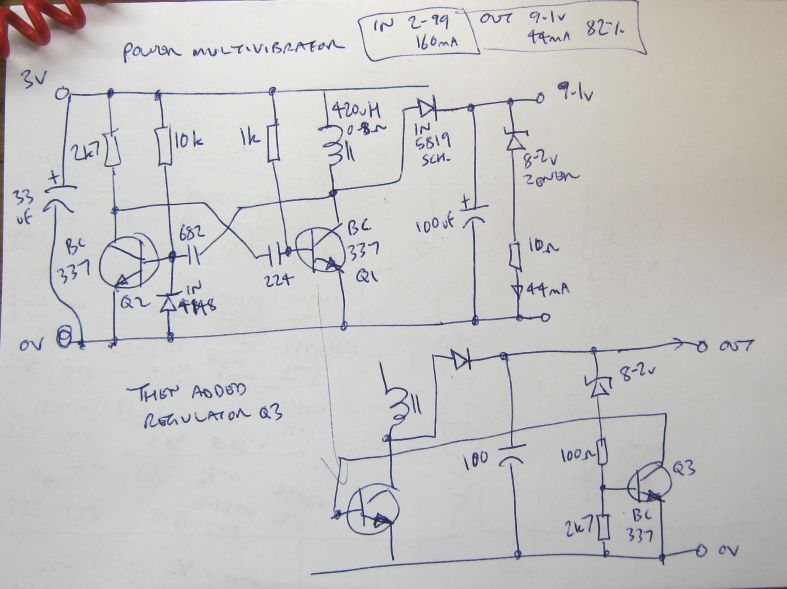 POWER MULTIVIBRATOR
IN 2-99
160mA
OUT 9-1v
44mA 82%
3V
9-1v
2k7
10k
1k
420uH
0.8Ω
IN
5819
SCH.
8-2v
ZENER
+
33
uF
BC
337
Q2
682
IN
4148
224
BC
337
Q1
+
100uF
10Ω
44mA
0V
THEN ADDED
REGULATOR Q3
OUT
8-2v
100
100Ω
Q3
2k7
BC
337
0V